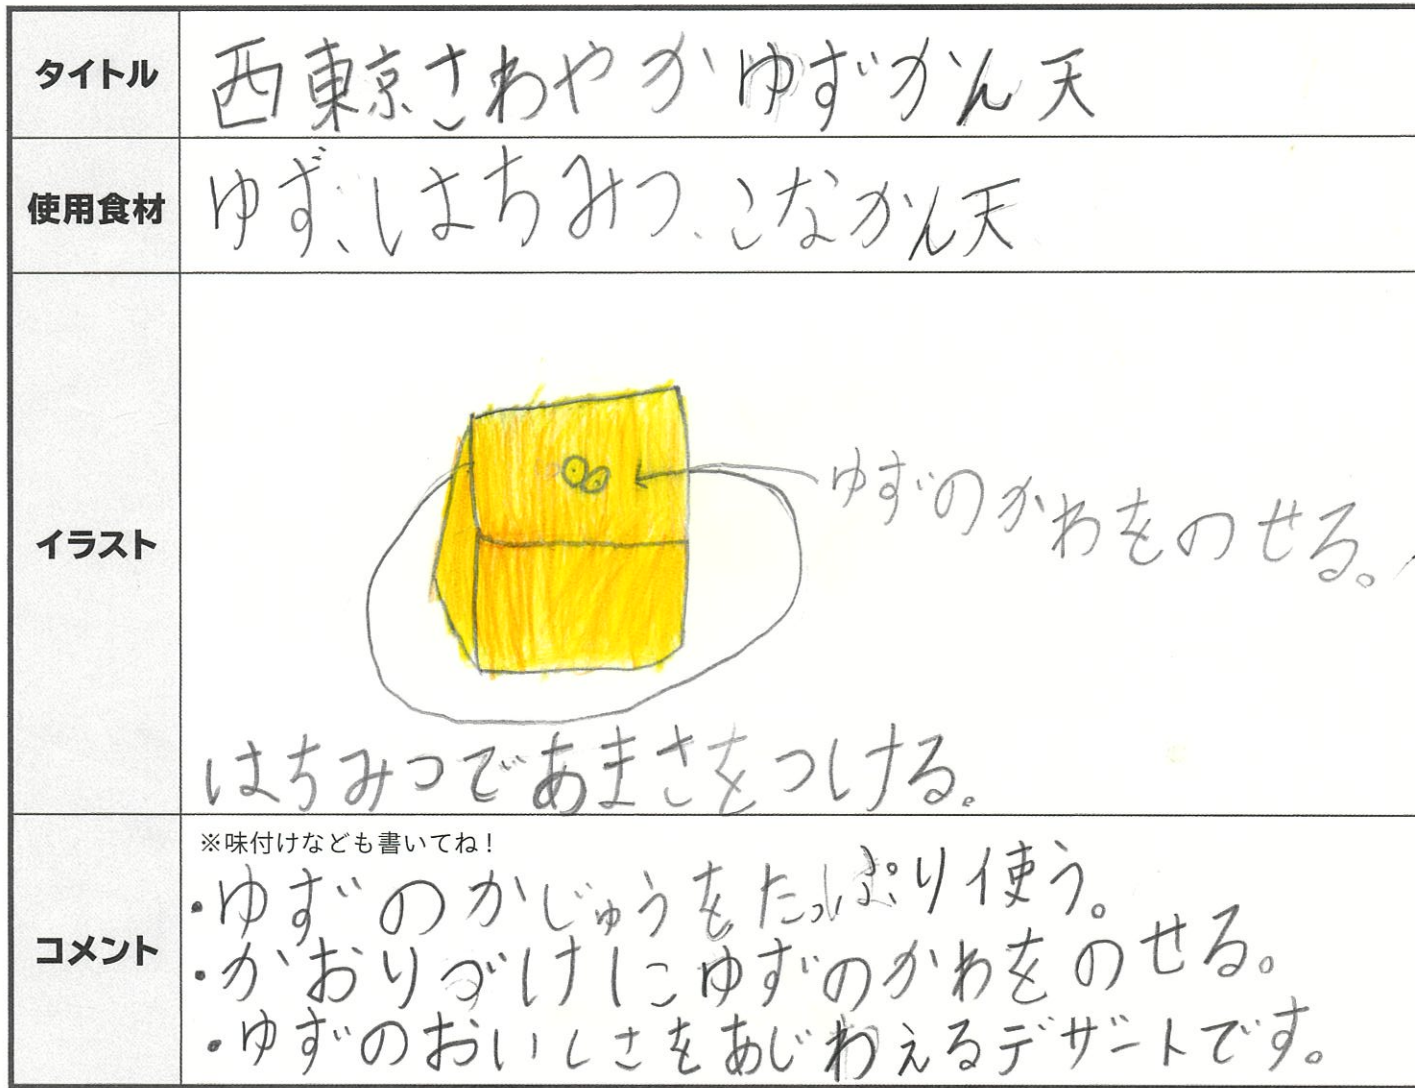 タイトル
西東京さわやかゆずかん天
使用食材
ゆず、はちみつ、こなかん天
イラスト
ゆずのかわをのせる。
はちみつであまさをつける。
コメント
※味付けなども書いてね！
・ゆずのかじゅうをたっぷり使う。
・かおりづけにゆずのかわをのせる。
・ゆずのおいしさをあじわえるデザートです。